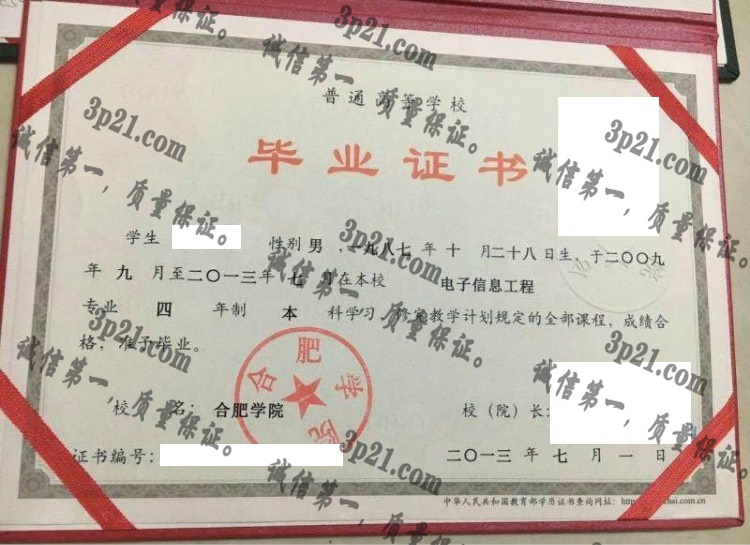 普通高等学校
毕业证书
学生 性别 男、一九八七年十月二十八日生,于二〇〇九
年九月至二〇一三年七月在本校 电子信息工程
专业 四 年制 本 科学习,修完教学计划规定的全部课程,成绩合
格,准予毕业。
校 名:合肥学院 校(院)长:
证书编号: 二〇一三年七月一日
中华人民共和国教育部学历证书查询网址:
合肥学院
3p21.com
诚信第一,质量保证。
3p21.com
诚信第一,质量保证。
3p21.com
诚信第一,质量保证。
3p21.com
诚信第一,质量保证。
3p21.com
诚信第一,质量保证。
3p21.com
诚信第一,质量保证。
3p21.com
诚信第一,质量保证。
3p21.com
诚信第一,质量保证。